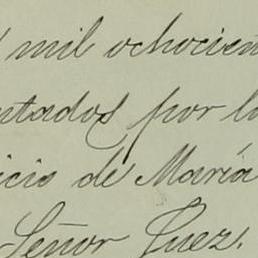 mil ochocien
ntados por l
icio de María
Señor Juez.